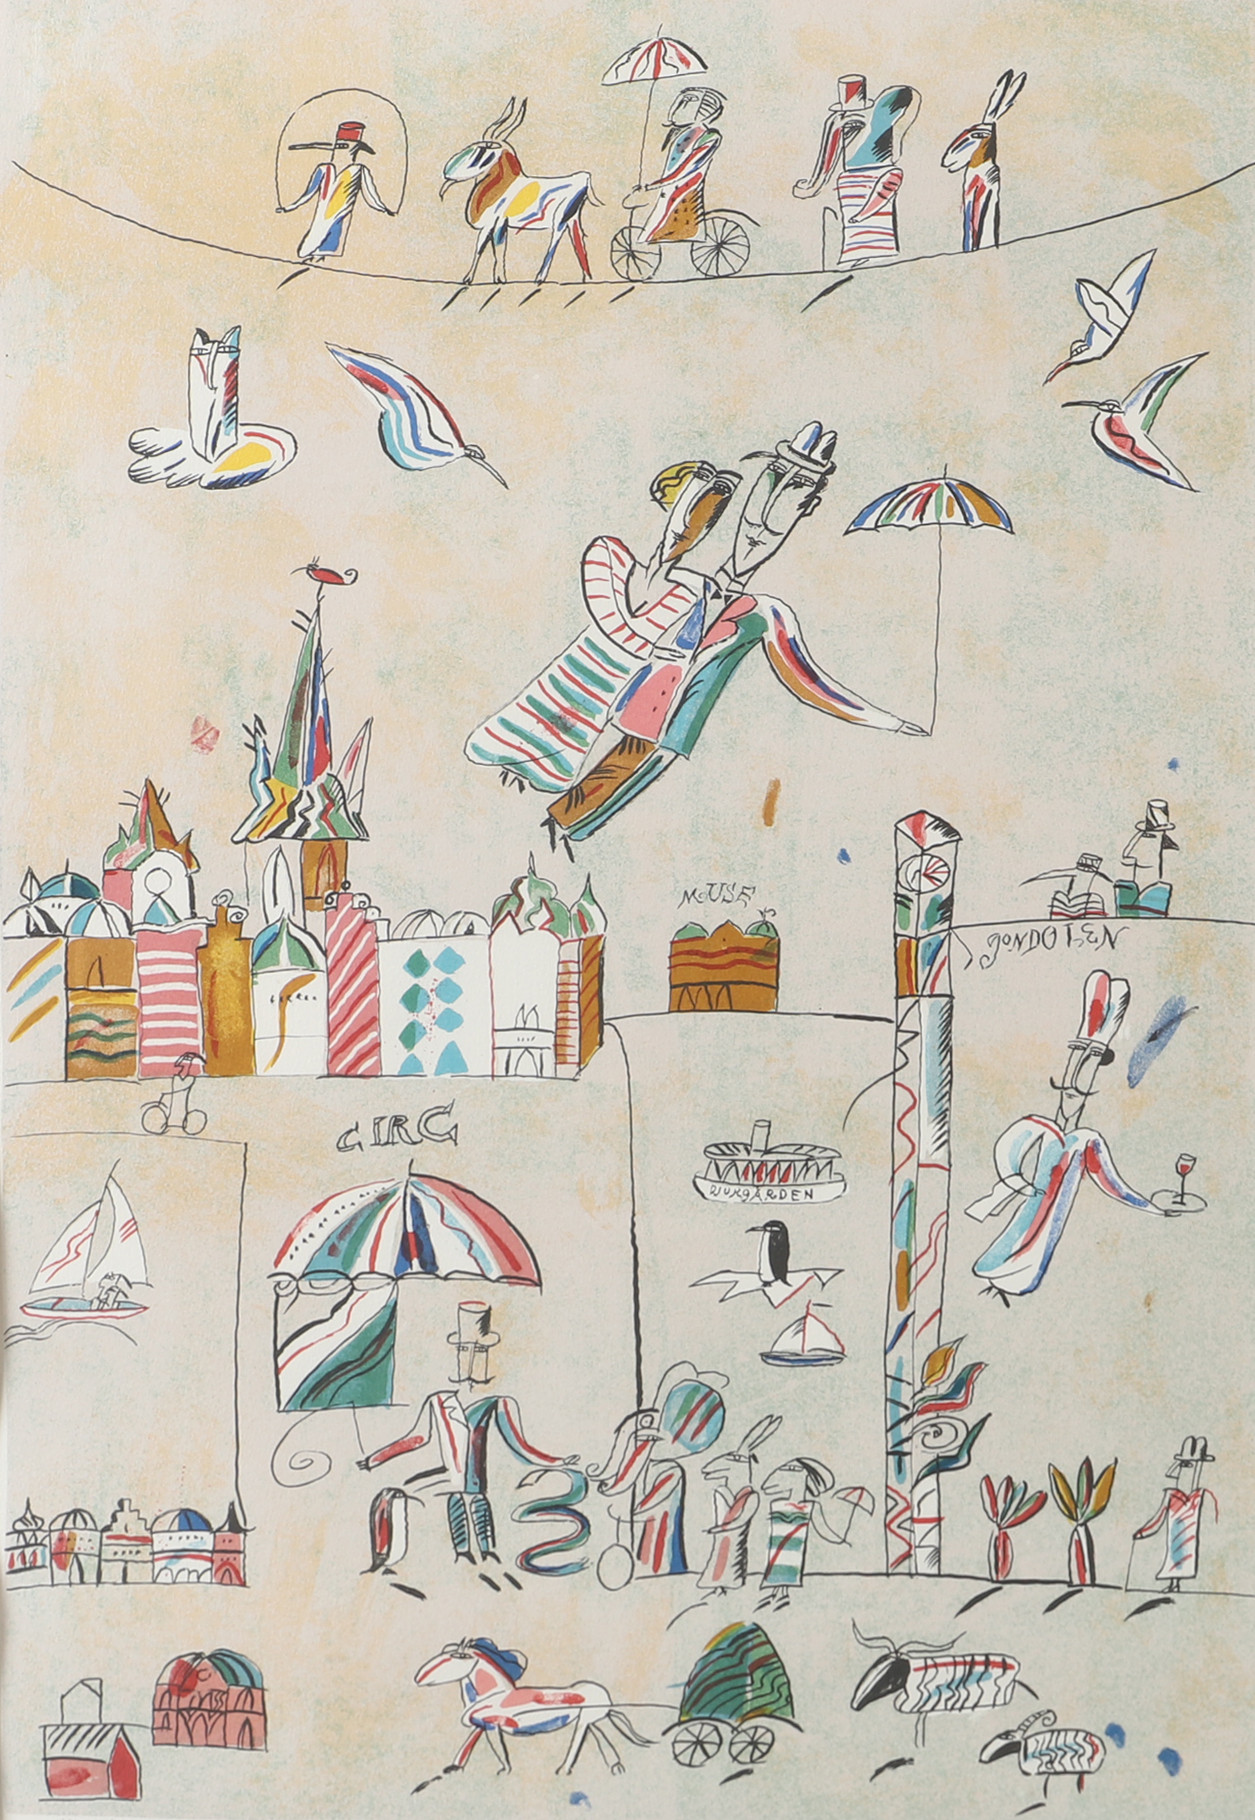 MOUSE
GONDOLEN
CIRC
DJURGÅRDEN